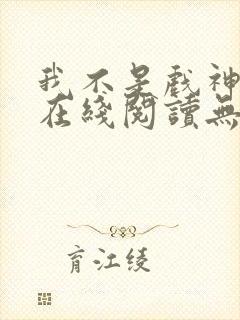 我不是戏神
在綫閱讀無
育江绫